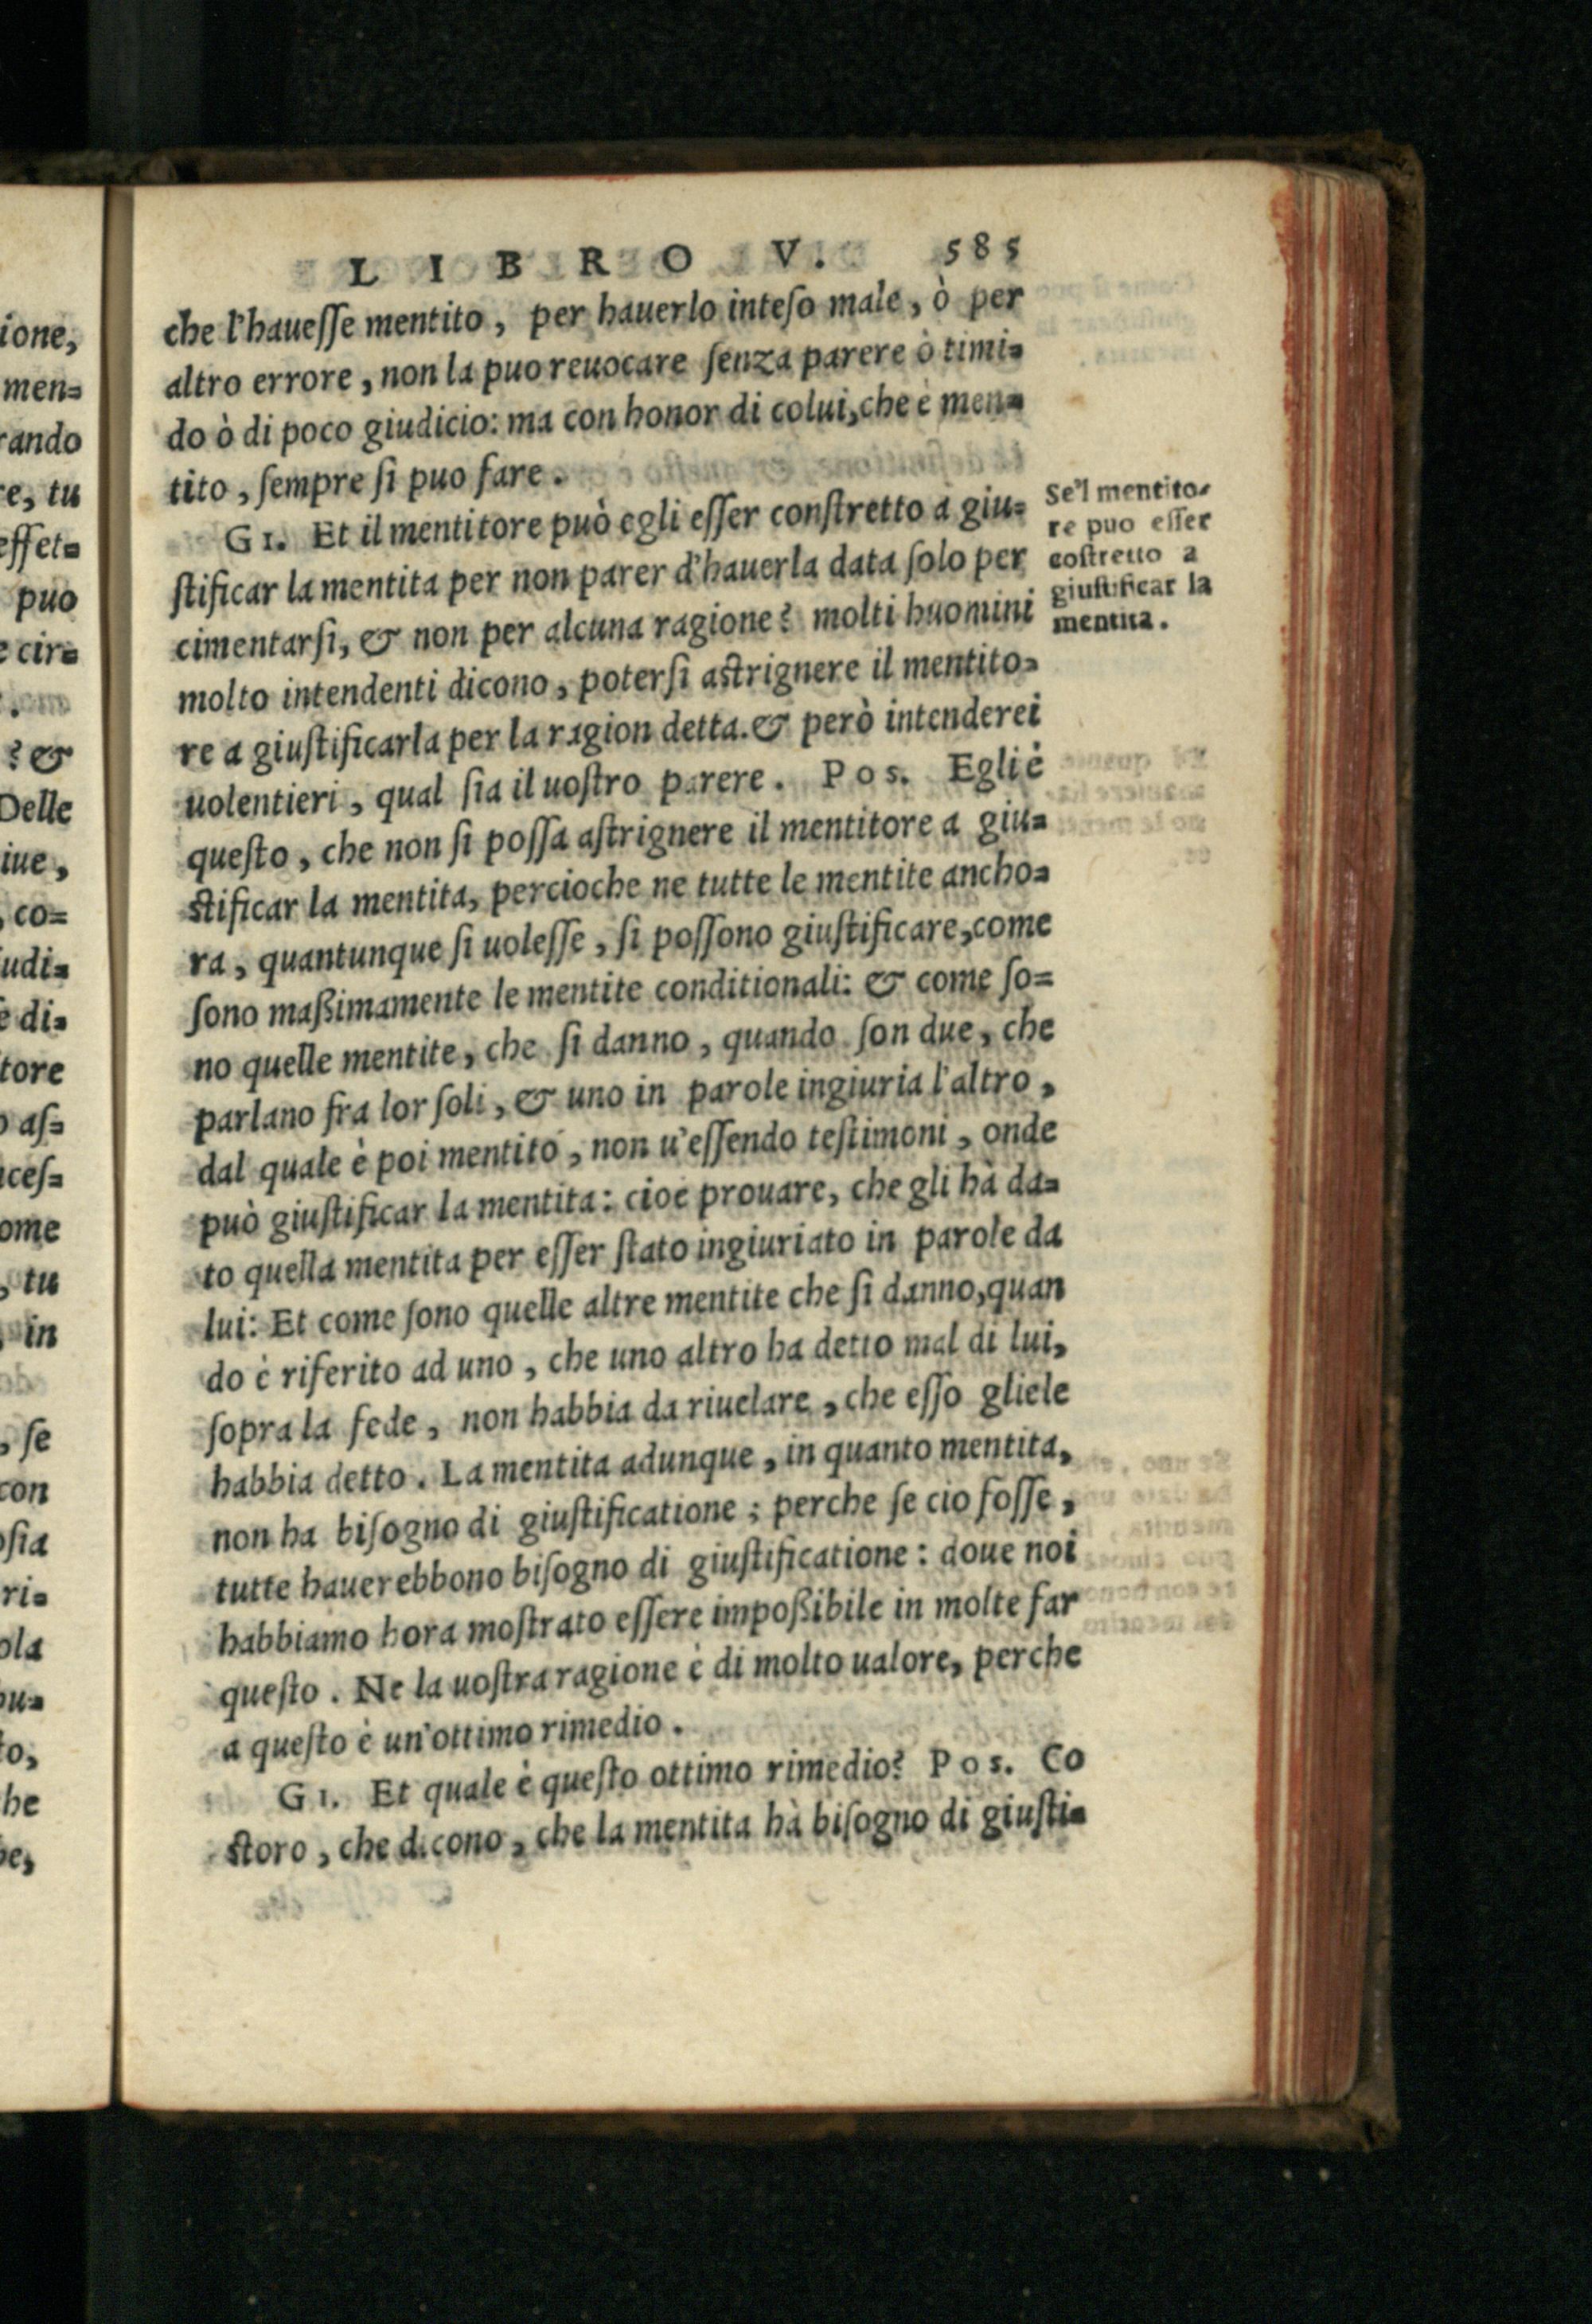 LIBRO V. 585
che l'hauesse mentito, per hauerlo inteso male, ò per
altro errore, non la puo reuocare senza parere ò timi=
do ò di poco giudicio: ma con honor di colui, che è men=
tito, sempre si puo fare.
GI. Et il mentitore può egli esser constretto à giu=
stificar la mentita per non parer d'hauerla data solo per
cimentarsi, & non per alcuna ragione? molti huomini
molto intendenti dicono, potersi astrignere il mentito=
re a giustificarla per la ragion detta. & però intenderei
uolentieri, qual sia il uostro parere. Pos. Egli è
questo, che non si possa astrignere il mentitore a giu=
stificar la mentita, percioche ne tutte le mentite ancho=
ra, quantunque si uolesse, si possono giustificare, come
sono maßimamente le mentite conditionali: & come so=
no quelle mentite, che si danno, quando son due, che
parlano fra lor soli, & uno in parole ingiuria l'altro,
dal quale è poi mentito, non u'essendo testimoni, onde
può giustificar la mentita: cioe prouare, che gli hà da=
to quella mentita per esser stato ingiuriato in parole da
lui: Et come sono quelle altre mentite che si danno, quan
do è riferito ad uno, che uno altro ha detto mal di lui,
sopra la fede, non habbia da riuelare, che esso gliele
habbia detto. La mentita adunque, in quanto mentita,
non ha bisogno di giustificatione; perche se cio fosse,
tutte hauerebbono bisogno di giustificatione: doue noi
habbiamo hora mostrato essere impoßibile in molte far
questo. Ne la uostra ragione è di molto ualore, perche
a questo è un'ottimo rimedio.
GI. Et quale è questo ottimo rimedio? Pos. Co
storo, che dicono, che la mentita hà bisogno di giusti=
Se'l mentito-
re puo esser
costretto a
giustificar la
mentita.
ione,
men=
rando
re, tu
effet=
puo
e cir=
? &
Delle
iue,
, co=
udi=
e di=
tore
o as=
ces=
ome
, tu
in
, se
con
osia
ri=
ola
ou=
to,
he
be,